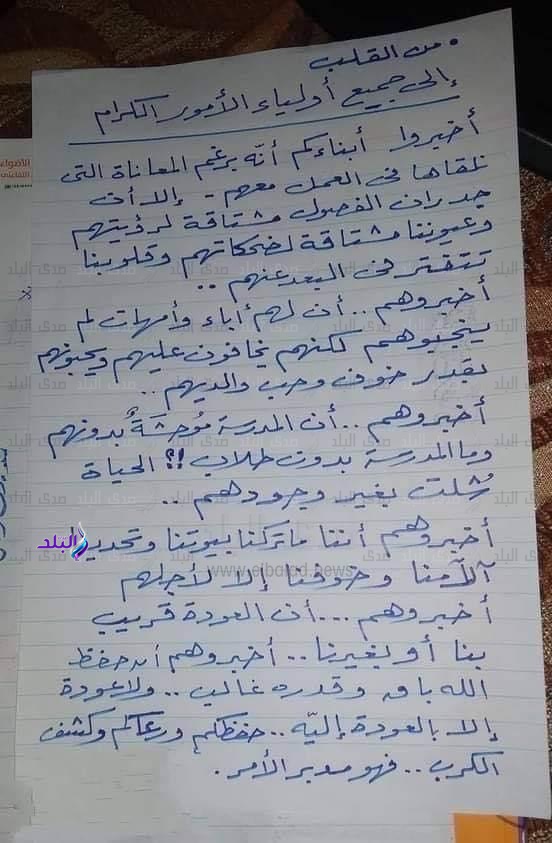 • من القلب
إلى جميع أولياء الأمور الكرام
أخبروا أبناءكم أنّه برغم المعاناة التى
نلقاها فى العمل معهم - إلا أن
جدران الفصول مشتاقة لرؤيتهم
وعيوننا مشتاقة لضحكاتهم وقلوبنا
تتفتر فى البعد عنهم ..
أخبروهم .. أن لهم أباء وأمهات لم
ينجبوهم لكنهم يخافون عليهم ويحبونهم
بقدار خوف وحب والديهم ..
أخبروهم .. أن المدرسة مُوحشَةٌ بدونهم
وما المدرسة بدون طلاب !؟ الحياة
شُلت بغير وجودهم ..
أخبروهم أننا ما تركنا بيوتنا وتحدينا
آلآمنا وخوفنا إلا لأجلهم
أخبروهم ... أن العودة قريب
بنا أو بغيرنا .. أخبروهم أن حفظ
الله باق وقدره غالب .. ولا عودة
إلا بالعودة إليّه .. حفظكم ورعاكم وكشف
الكرب .. فهو مدبر الأمر .
الأضواء
صدى البلد
www.elbalad.news